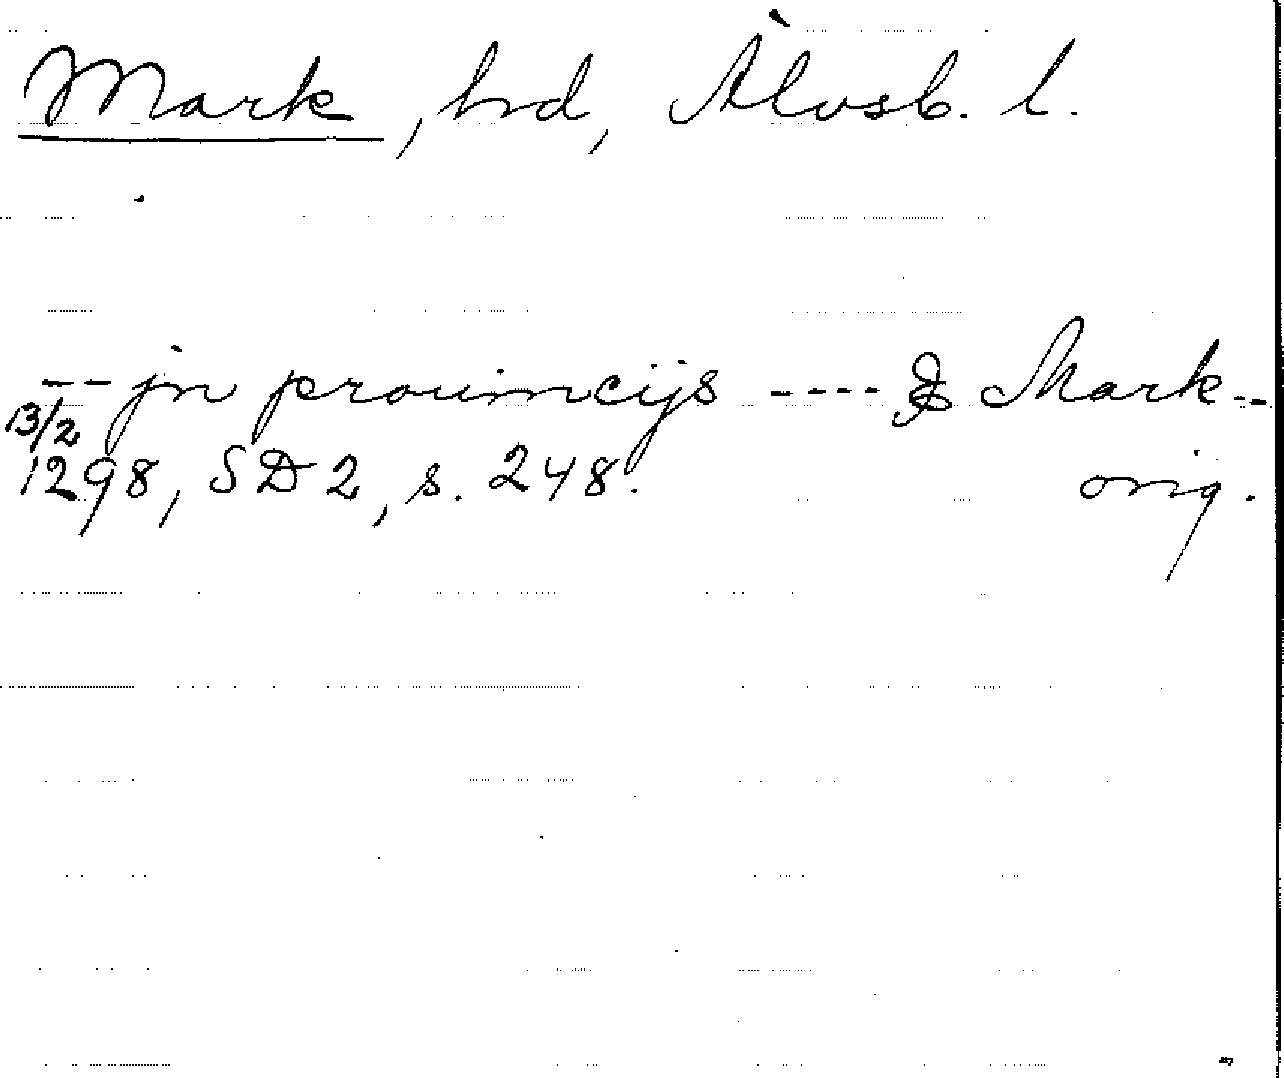 Mark, hd, Älvsb. l.
-- jn prouincijs ---- & Mark--
13/2
1298, SD 2, s. 248. orig.